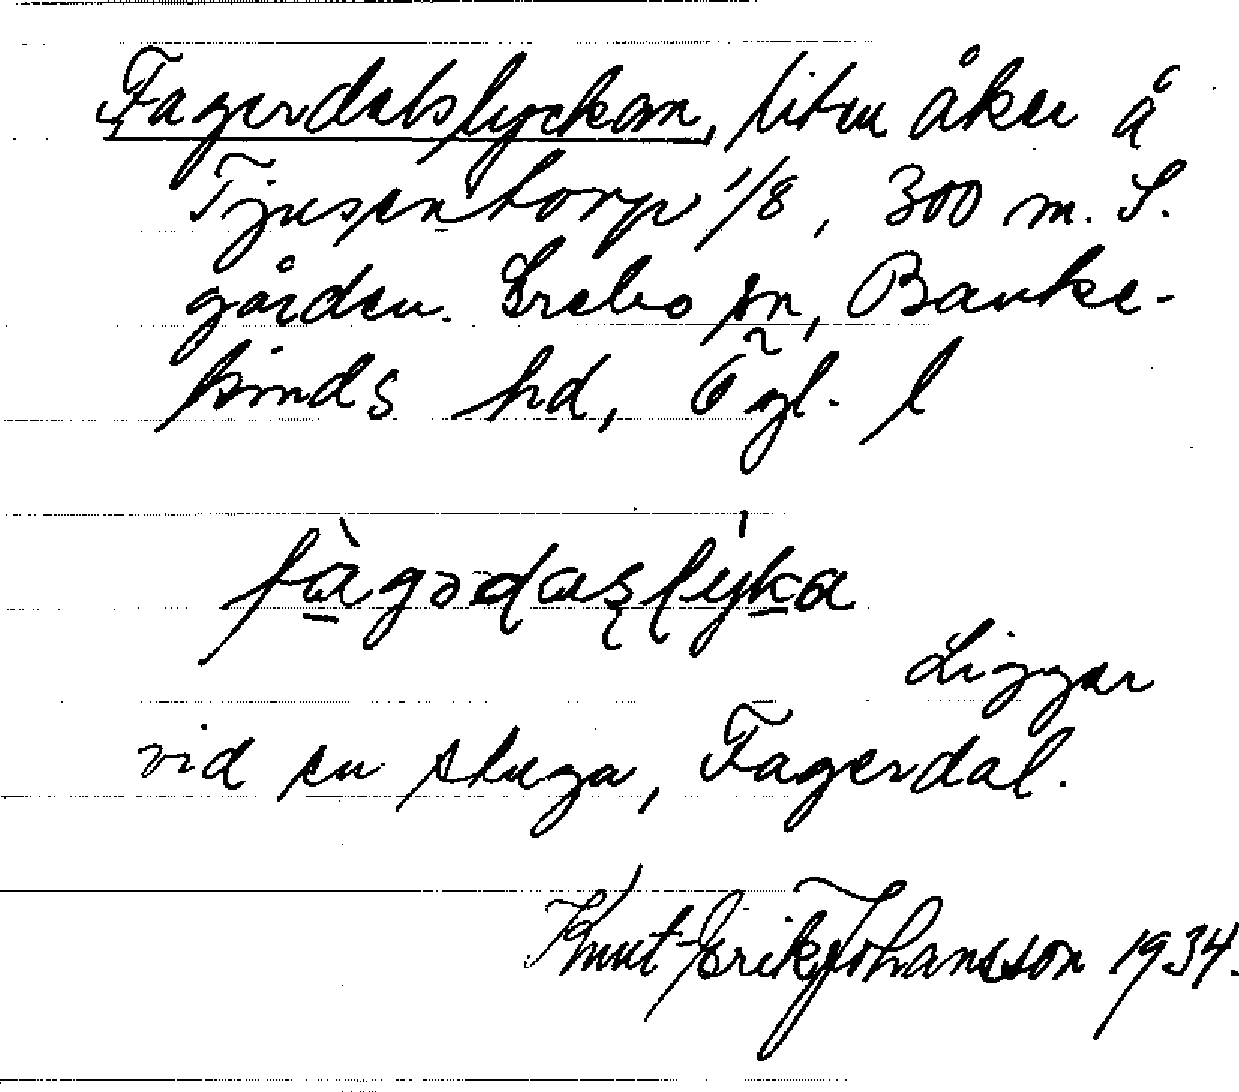 Fagerdalslyckan, liten åker å
Tjusentorp 1/8, 300 m. S.
gården. Grebo sn, Banke-
kinds hd, Ögl. l
fàgədaslýka
Ligger
vid en stuga, Fagerdal.
Knut-Erik Johansson 1934.